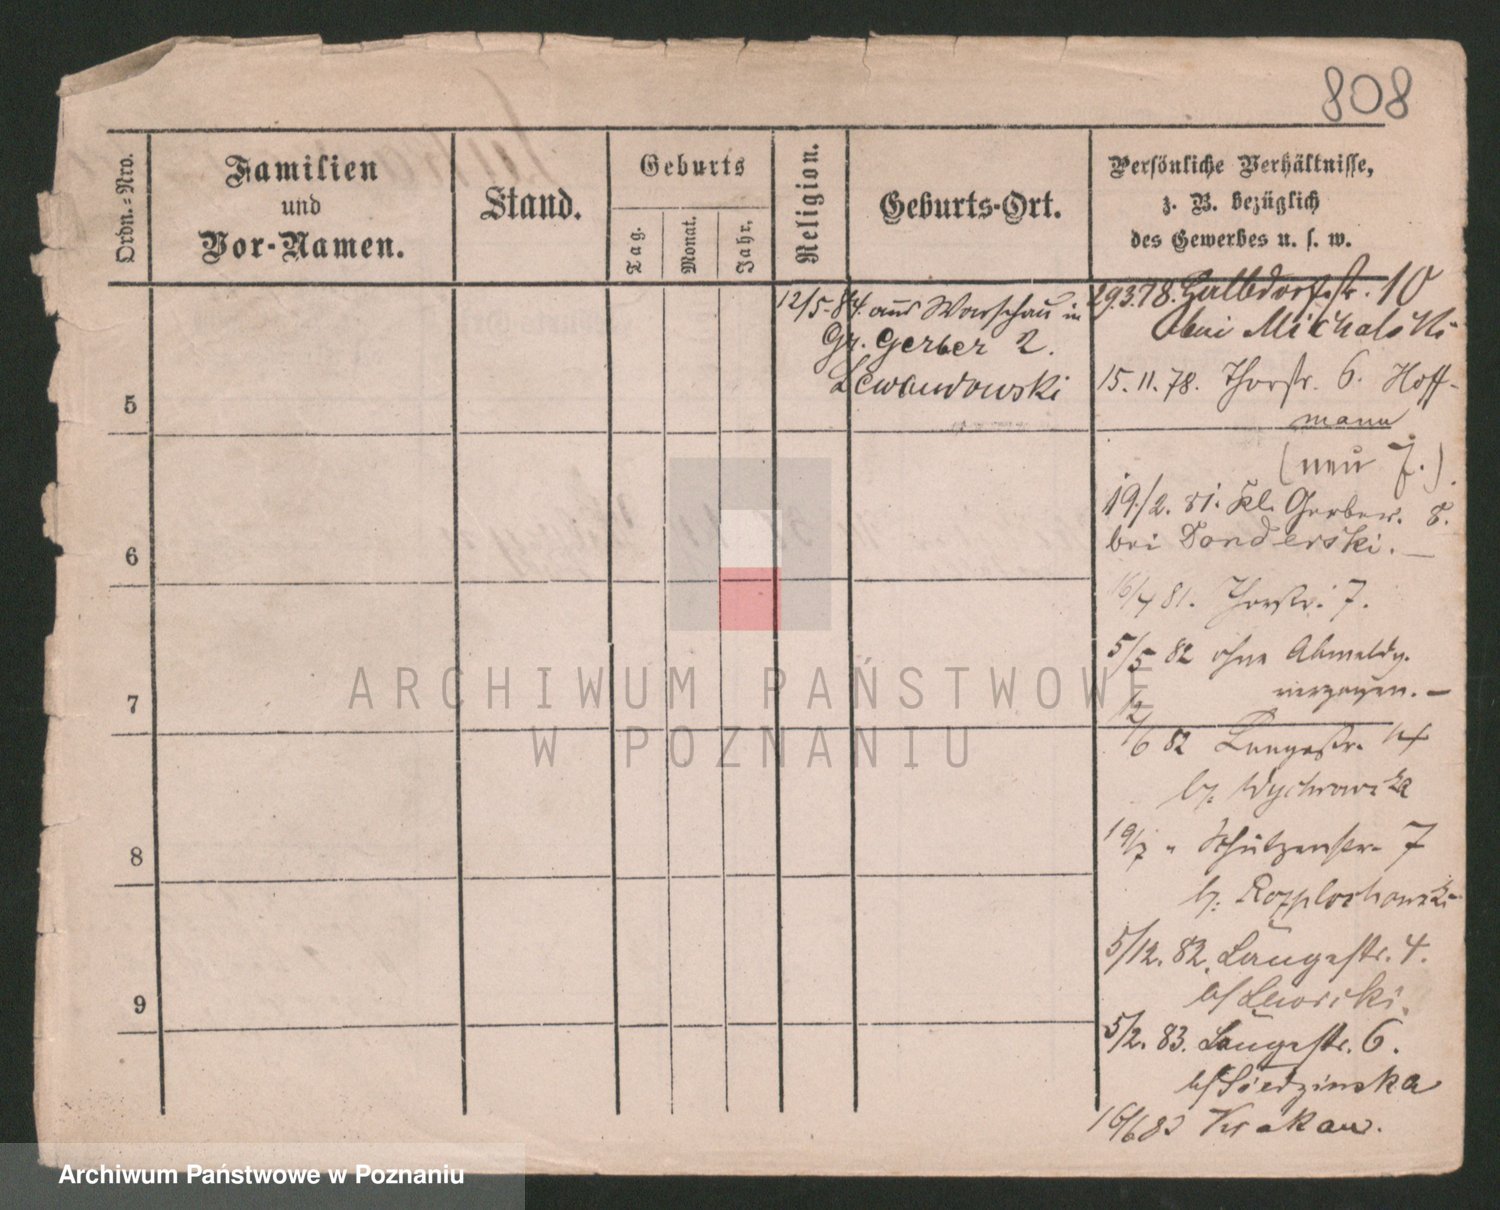 808
Ordn.-Nro.
Familien
und
Vor-Namen.
Stand.
Geburts
Tag.
Monat.
Jahr.
Religion.
Geburts-Ort.
Persönliche Verhältnisse,
z. B. bezüglich
des Gewerbes u. s. w.
12/5. 84. aus Warschau in
Gr. Gerber 2.
Lewandowski
29.3.78. Halbdorfstr. 10
bei Michalski
15. 11. 78. Thorstr. 6. Hoff-
mann
(neu 7.)
19/2. 81. Kl. Gerber. 8.
bei Donderski. —
16/4 81. Thorstr. 7.
5/5 82 ohne Abmeldg.
verzogen. —
2/6 82 Langestr.
b/. Wychowska
19/7 " Schützenstr. 7
b/. Rozplochowski
5/12. 82. Langestr. 4.
b/
5/2. 83. Langestr. 6.
b/ Siedzinska
16/6 83 Krakau.
5
6
7
8
9
ARCHIWUM PAŃSTWOWE
W POZNANIU
Archiwum Państwowe w Poznaniu